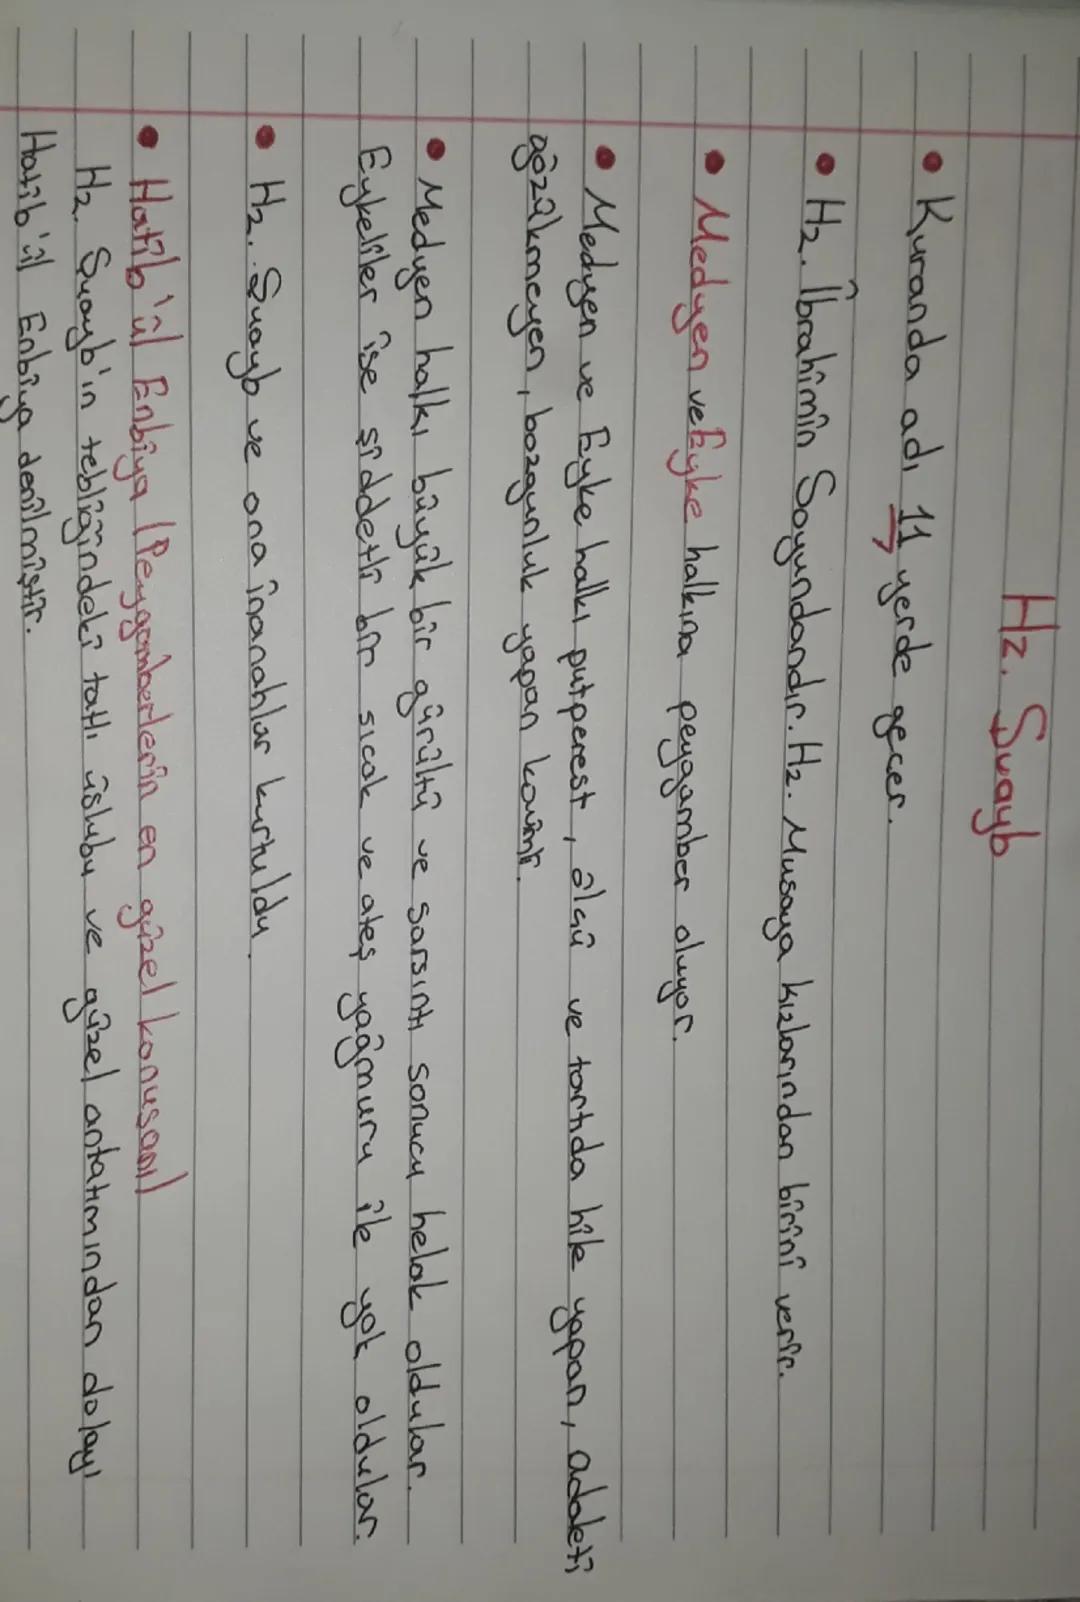 Hz. Şuayb
• Kuranda adı 11 yerde geçer.
• Hz. İbrahimin Soyundandır. Hz. Musaya kızlarından birini verir.
• Medyen ve Eyke halkına peygamber oluyor.
• Medyen ve Eyke halkı putperest, ölçü ve tartıda hile yapan, adaleti
gözükmeyen, bozgunluk yapan kavimdi.
• Medyen halkı büyük bir gürültü ve sarsıntı sonucu helak oldular.
Eykeliler ise şiddetli bir sıcak ve ateş yağmuru ile yok oldular.
• Hz. Şuayb ve ona inananlar kurtuldu.
• Hatib'ül Enbiya (Peygamberlerin en güzel konuşanı)
Hz. Şuayb'ın tebliğindeki tatlı üslubu ve güzel anlatımından dolayı
Hatib'ül Enbiya denilmiştir.